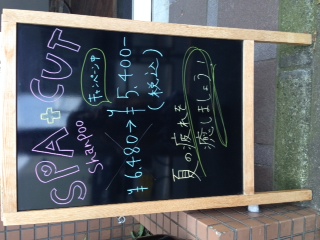 SPA+CUT
Shampoo
キャンペーン中
¥6,480→¥5,400-
(税込)
夏の疲れを
癒しましょう!